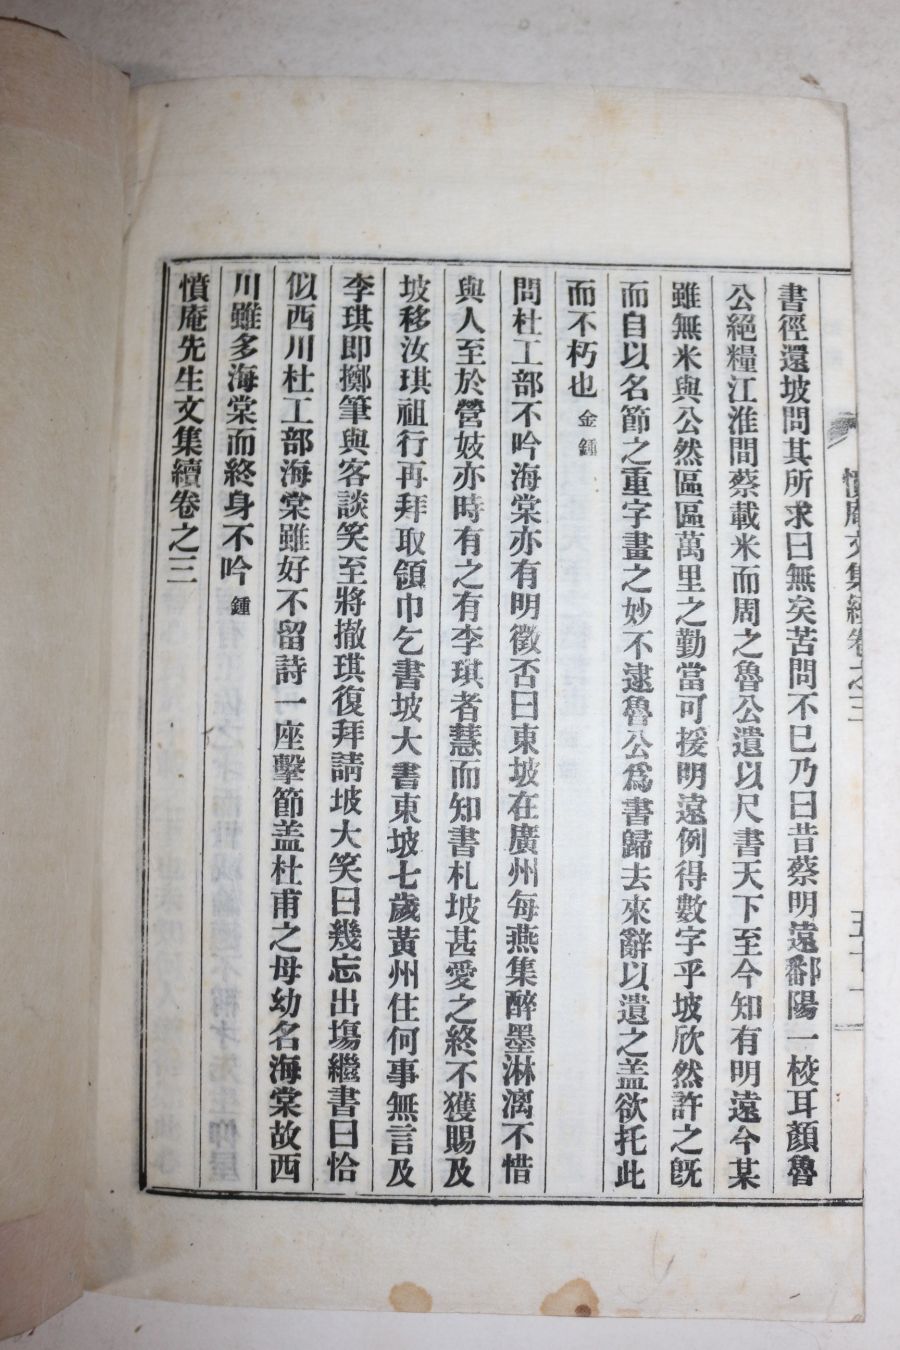 憤庵文集續卷之三
五十一
書徑還坡問其所求曰無矣苦問不已乃曰昔蔡明遠鄱陽一校耳顏魯
公絕糧江淮間蔡載米而周之魯公遺以尺書天下至今知有明遠今某
雖無米與公然區區萬里之勤當可援明遠例得數字乎坡欣然許之旣
而自以名節之重字畫之妙不逮魯公爲書歸去來辭以遺之盖欲托此
而不朽也 金鍾
問杜工部不吟海棠亦有明徵否曰東坡在廣州每燕集醉墨淋漓不惜
與人至於營妓亦時有之有李琪者慧而知書札坡甚愛之終不獲賜及
坡移汝琪祖行再拜取領巾乞書坡大書東坡七歲黃州住何事無言及
李琪即擲筆與客談笑至將撤琪復拜請坡大笑曰幾忘出塲繼書曰恰
似西川杜工部海棠雖好不留詩一座擊節盖杜甫之母幼名海棠故西
川雖多海棠而終身不吟 鍾
憤庵先生文集續卷之三